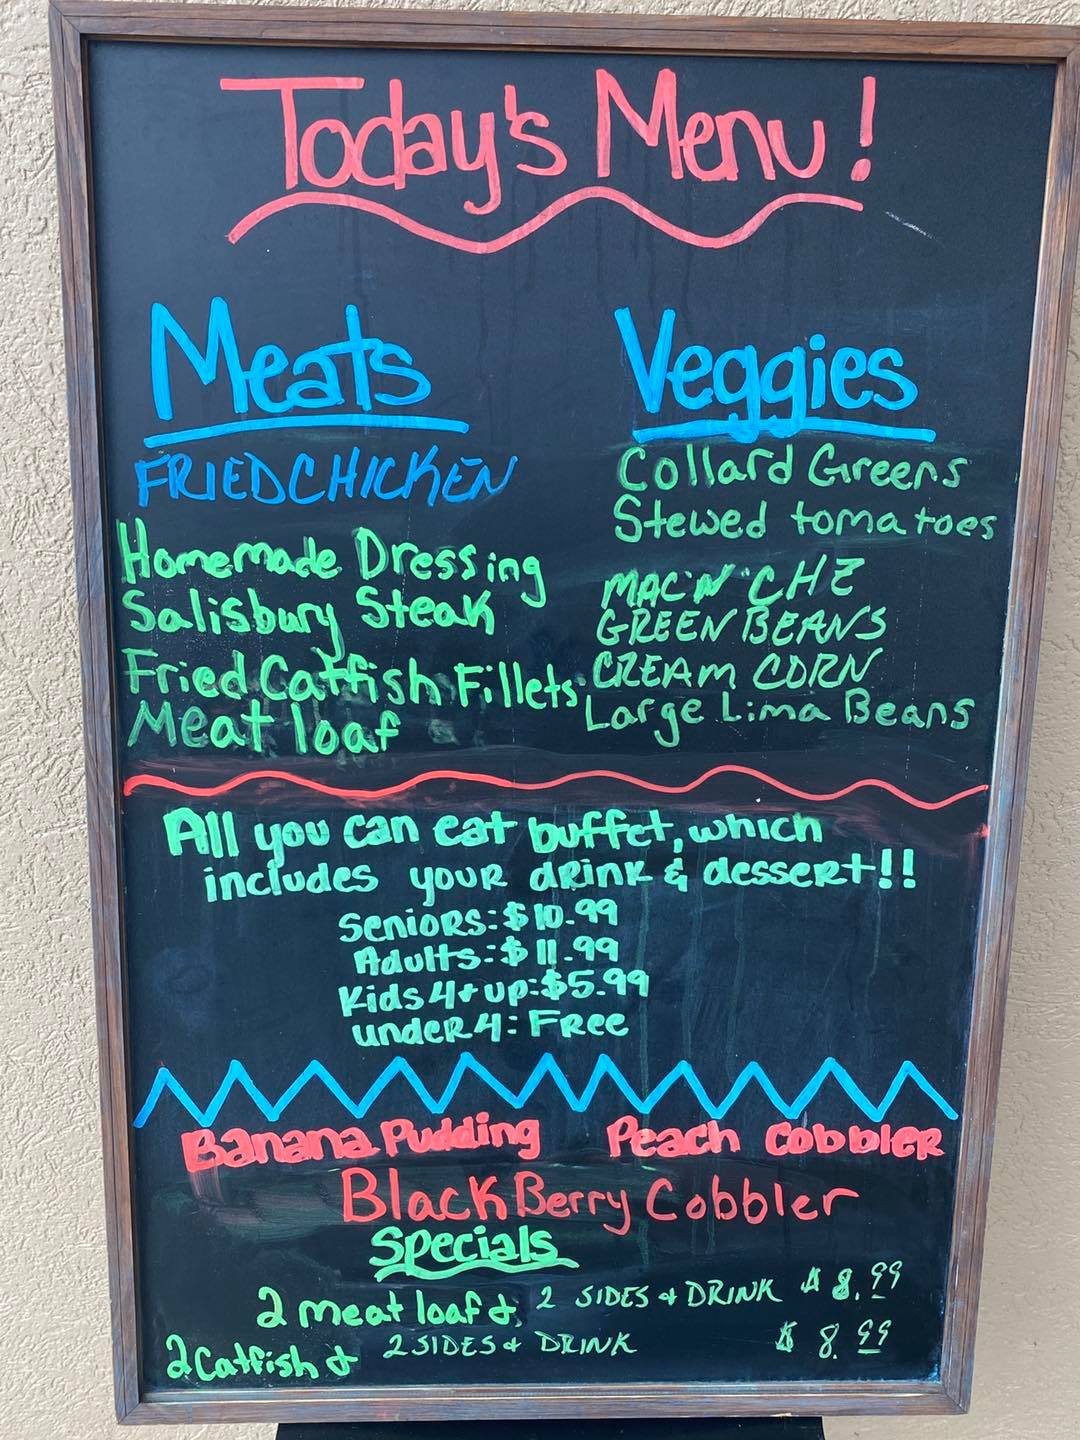 Today's Menu!
Meats
FRIED CHICKEN
Homemade Dressing
Salisbury Steak
Fried Catfish Fillets
Meat loaf
Veggies
Collard Greens
Stewed tomatoes
MAC'N'CHZ
GREEN BEANS
CREAM CORN
Large Lima Beans
All you can eat buffet, which
includes your drink & dessert!!
Seniors: $10.99
Adults: $11.99
Kids 4+up: $5.99
under 4: Free
Banana Pudding Peach Cobbler
BlackBerry Cobbler
Specials
2 meat loaf & 2 SIDES & DRINK $8.99
2 Catfish & 2 SIDES & DRINK $8.99